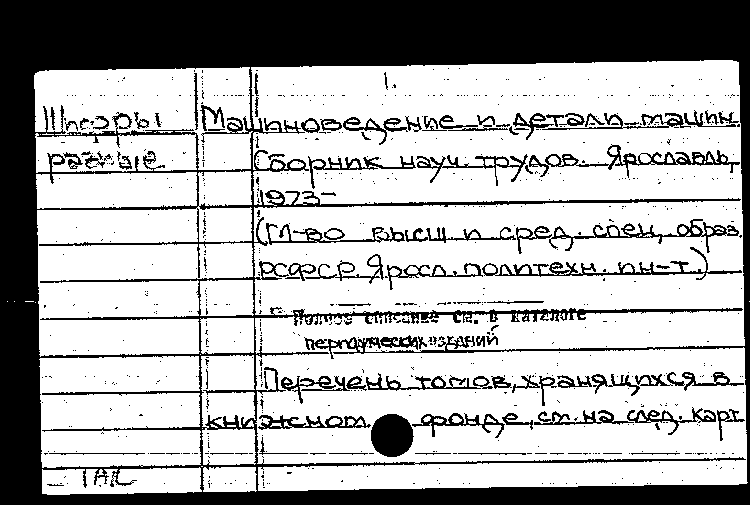 1.
Шифры Машиноведение и детали машин.
разные Сборник науч. трудов. Ярославль,
1973-
(М-во высш и сред. спец. образ.
РСФСР. Яросл. политехн. ин-т.)
Полное описание см. в каталоге
периодических изданий
Перечень томов, хранящихся в
книжном фонде, см. на след. карт